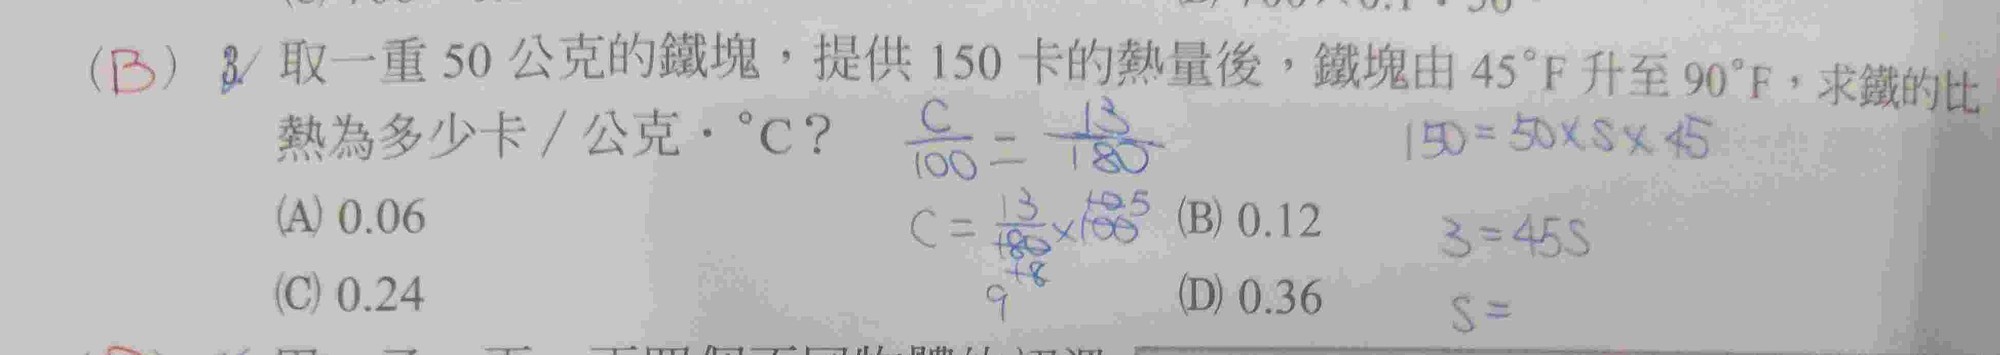 (B) 3 取一重 50 公克的鐵塊，提供 150 卡的熱量後，鐵塊由 45°F 升至 90°F，求鐵的比
熱為多少卡 / 公克．°C？
C/100 = 13/180
150 = 50 × S × 45
(A) 0.06
C = 13/180 × 100 5
(B) 0.12
3 = 45S
9
(C) 0.24
(D) 0.36
S =